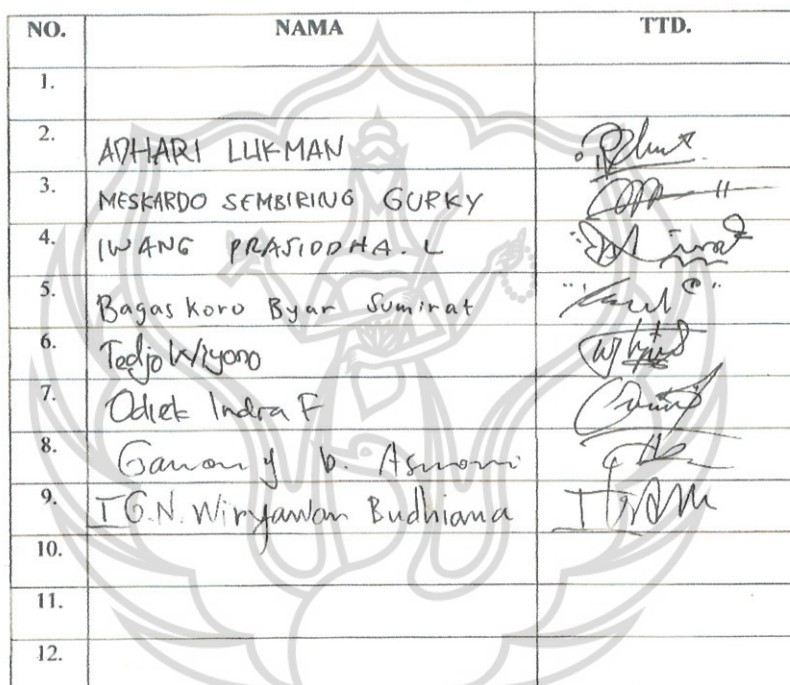 NO. NAMA TTD.
1.
2. ADHARI LUKMAN
3. MESKARDO SEMBIRING GURKY
4. IWANG PRASIDDHA. L
5. Bagas Koro Byar Sumirat
6. Tedjo Wiyono
7. Odiek Indra F
8. b.
9. I G.N. Wiryawan Budhiana
10.
11.
12.